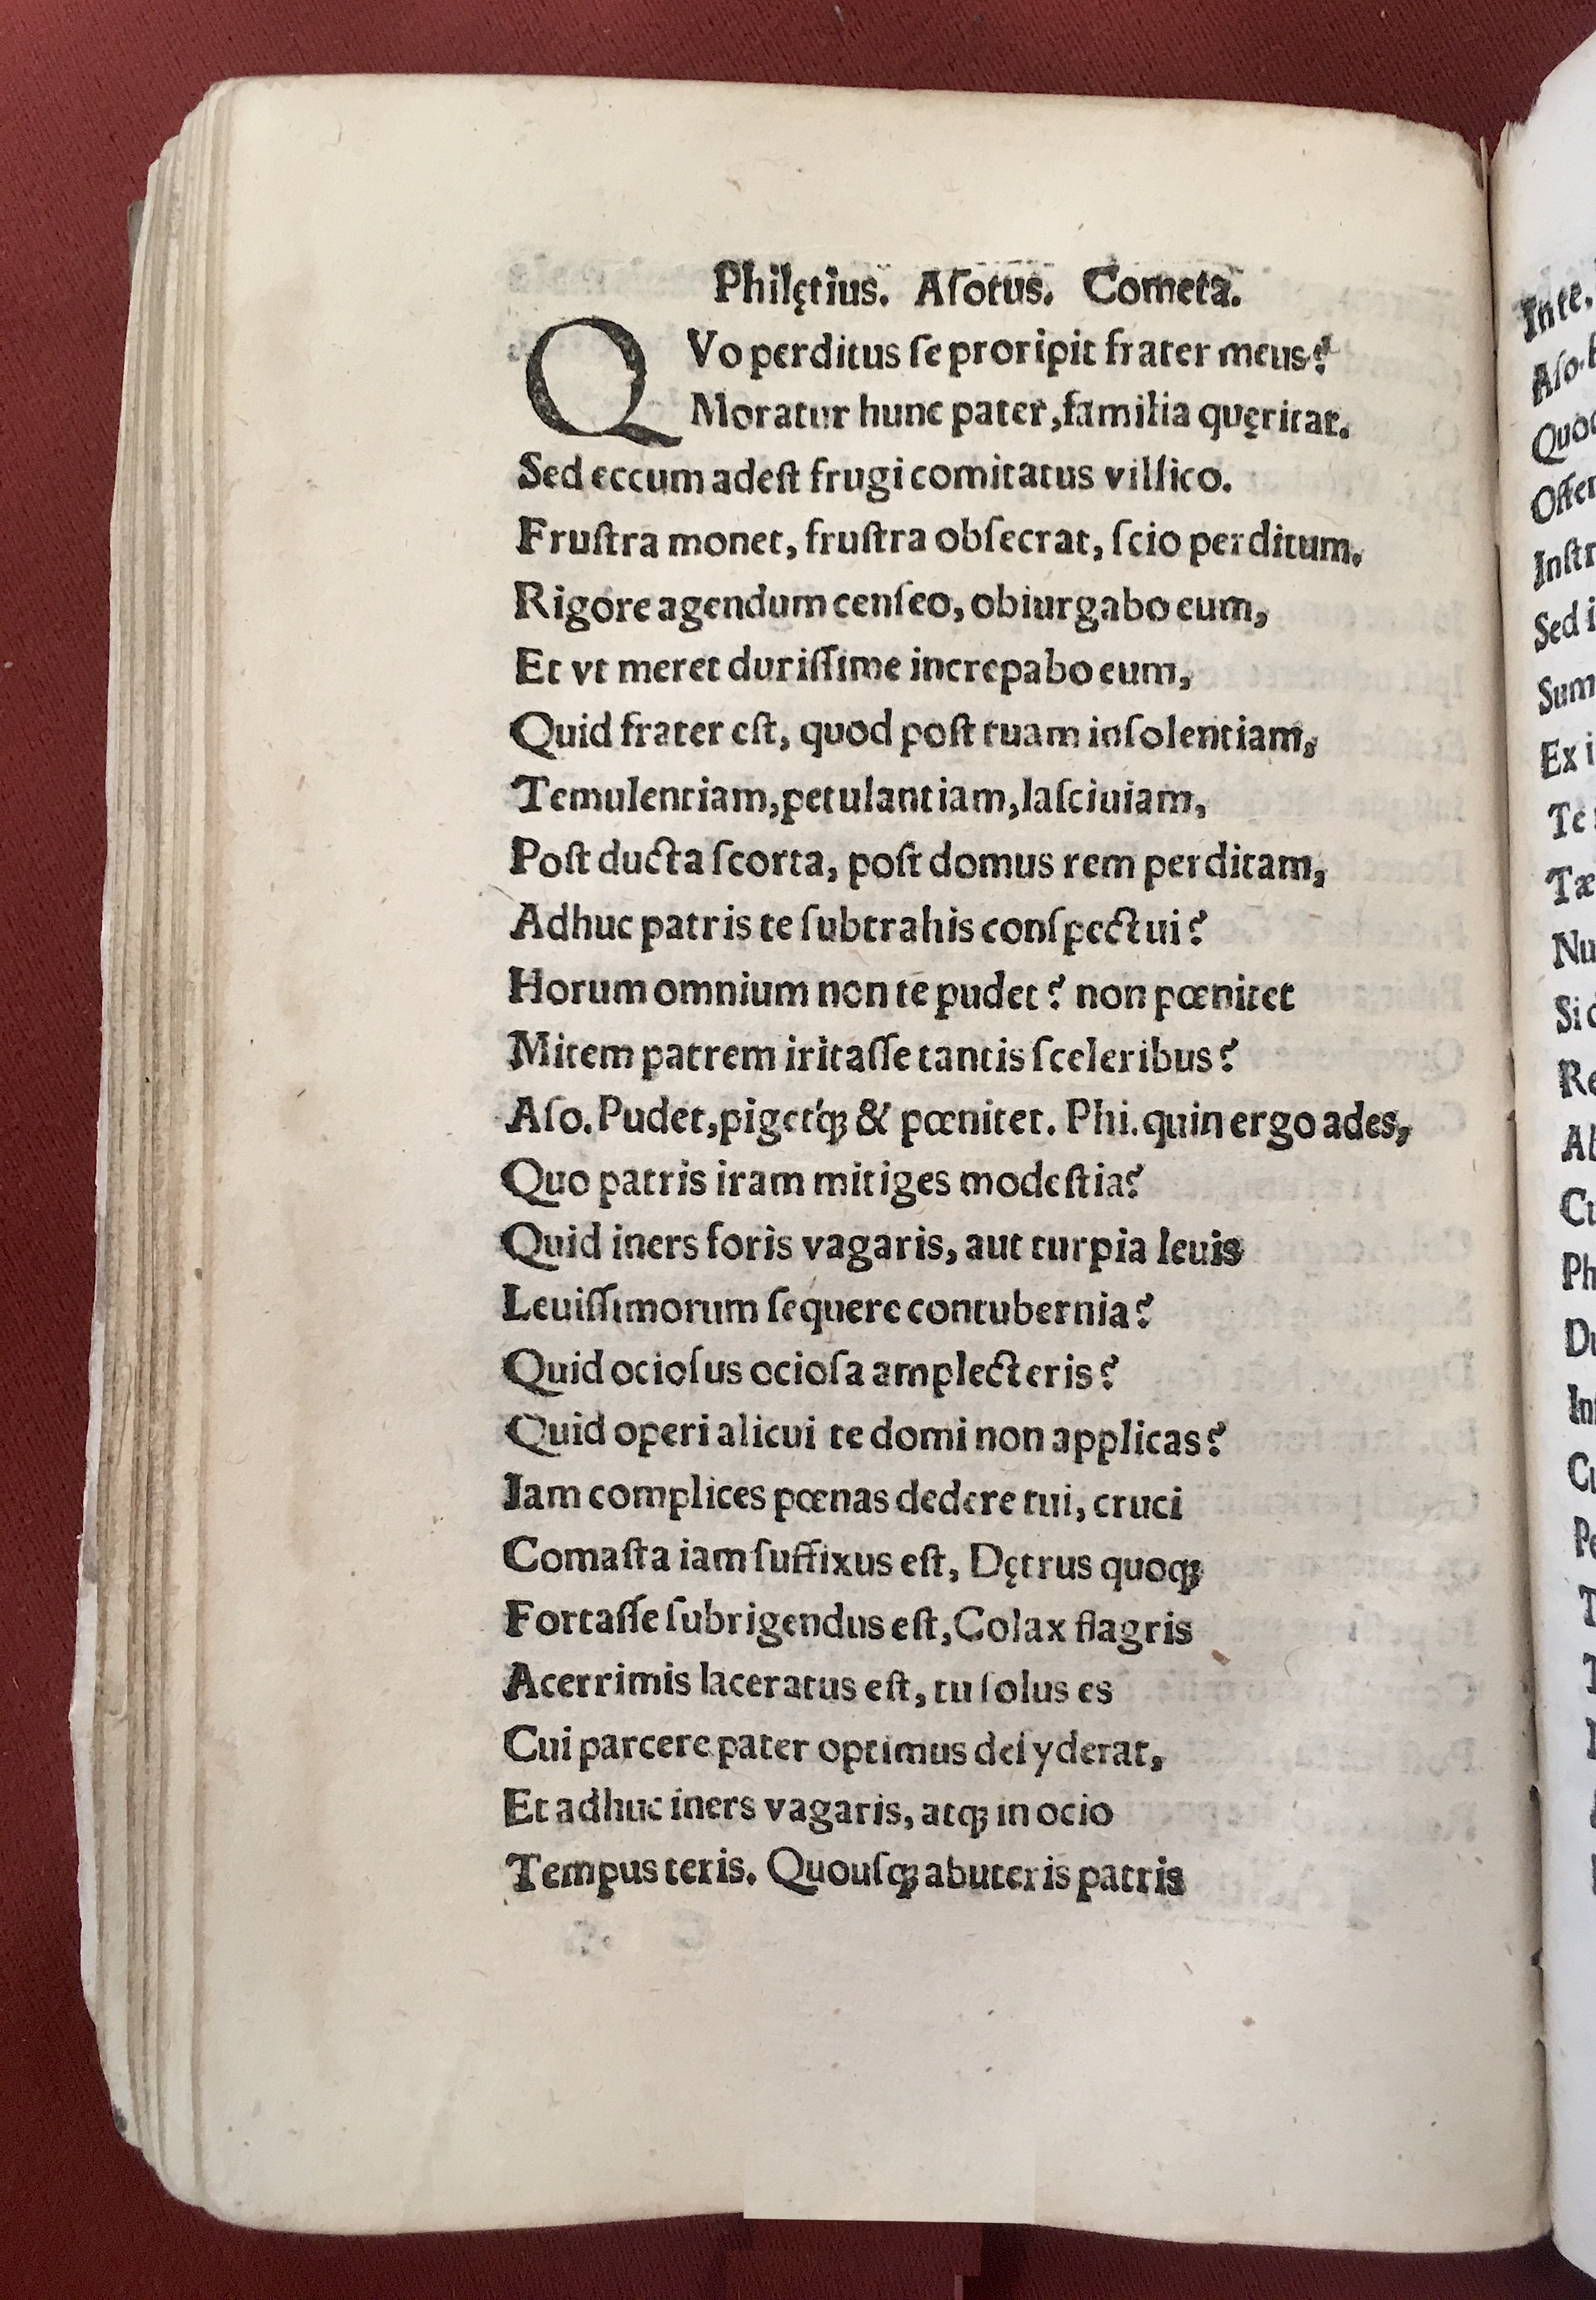 Philętius. Aſotus. Cometa.
QVo perditus ſe proripit frater meus?
Moratur hunc pater, familia quęritat.
Sed eccum adeſt frugi comitatus villico.
Fruſtra monet, fruſtra obſecrat, ſcio perditum.
Rigore agendum cenſeo, obiurgabo eum,
Et vt meret duriſſime increpabo eum,
Quid frater eſt, quod poſt tuam inſolentiam,
Temulentiam, petulantiam, laſciuiam,
Poſt ducta ſcorta, poſt domus rem perditam,
Adhuc patris te ſubtrahis conſpectui?
Horum omnium non te pudet? non pœnitet
Mitem patrem iritaſſe tantis ſceleribus?
Aſo. Pudet, pigetq́ꝫ & pœnitet. Phi. quin ergo ades,
Quo patris iram mitiges modeſtia?
Quid iners foris vagaris, aut turpia leuis
Leuiſſimorum ſequere contubernia?
Quid ocioſus ocioſa amplecteris?
Quid operi alicui te domi non applicas?
Iam complices pœnas dedere tui, cruci
Comaſta iam ſuffixus eſt, Dętrus quoqꝫ
Fortaſſe ſubrigendus eſt, Colax flagris
Acerrimis laceratus eſt, tu ſolus es
Cui parcere pater optimus deſyderat,
Et adhuc iners vagaris, atqꝫ in ocio
Tempus teris. Quouſqꝫ abuteris patris
Inte.
Aſo.
Sed i
Sum
Ex i
Te
Tæ
Nu
Si
Re